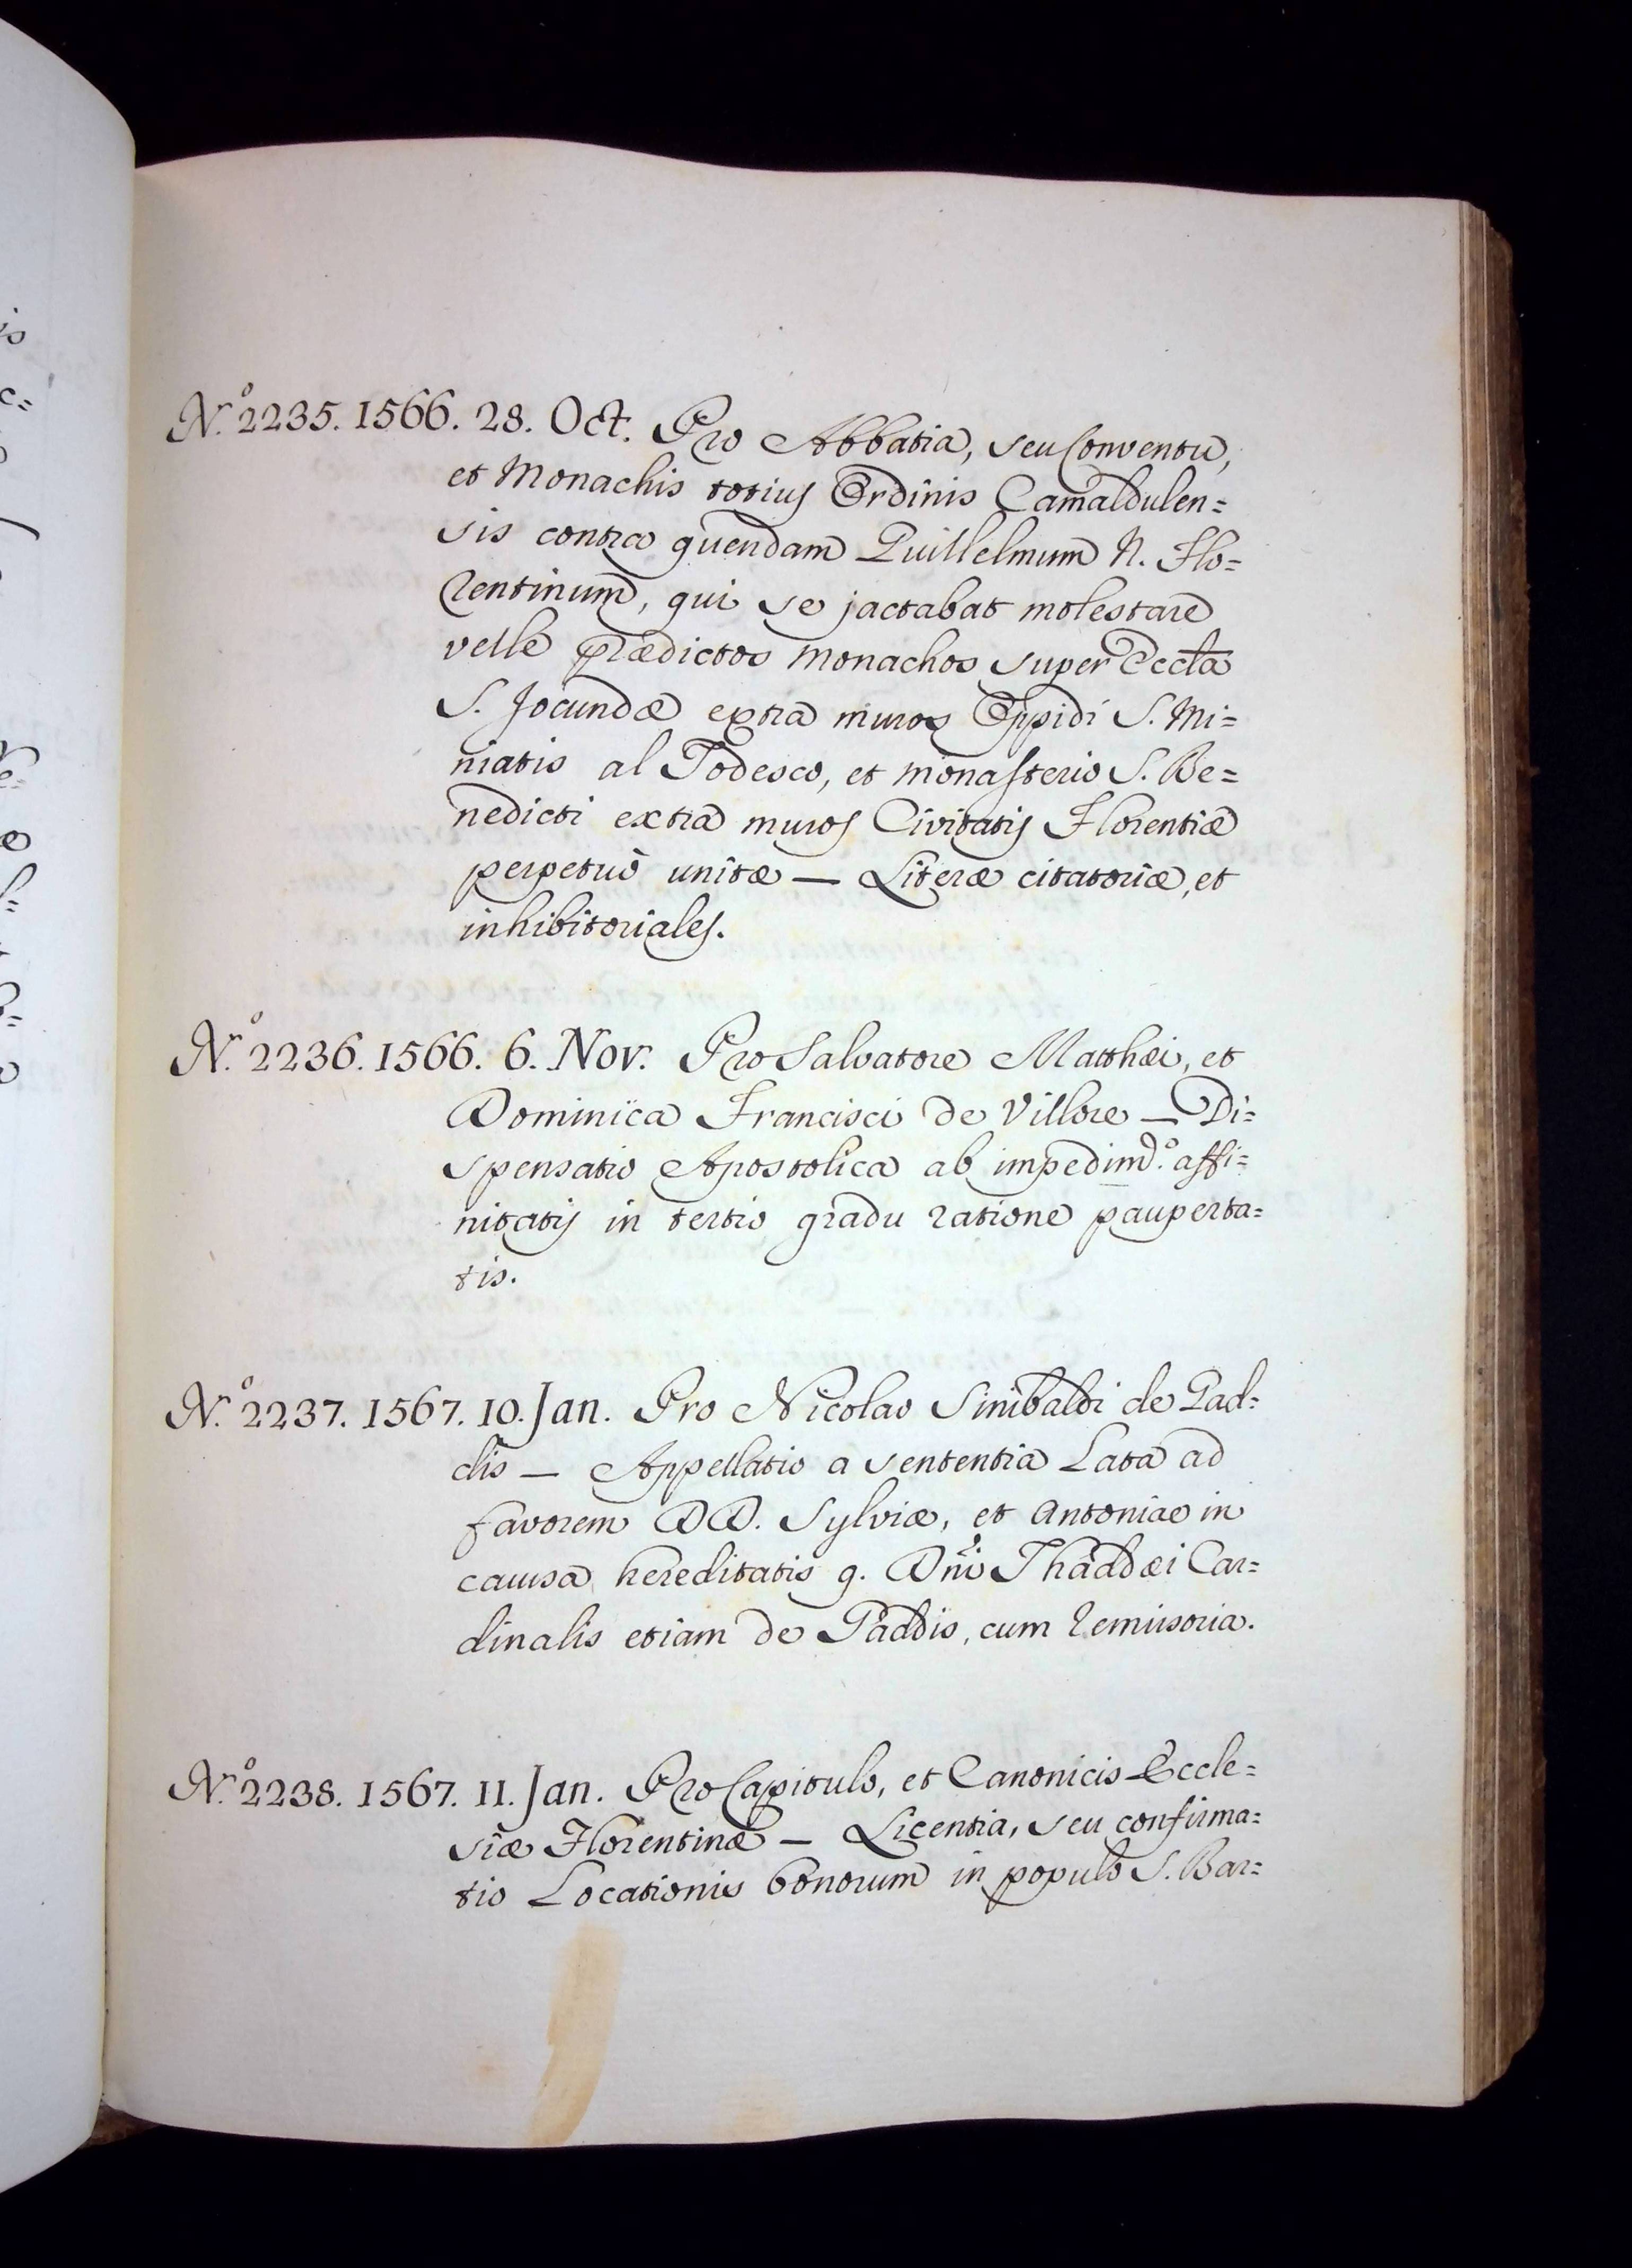 N.º 2235. 1566. 28. Oct. Pro Abbatia, seu Conventu,
et Monachis totius Ordinis Camaldulen=
sis contra quendam Guillelmum N. Flo=
rentinum, qui se jactabat molestare
velle prædictos monachos super Eccl̃a
S. Jocundæ extra muros Oppidi S. Mi=
niatis al Todesco, et monasterio S. Be=
nedicti extra muros Civitatis Florentiæ
perpetuò unitæ — Literæ citatoriæ, et
inhibitoriales.
N.º 2236. 1566. 6. Nov. Pro Salvatore Matthæi, et
Dominica Francisci de Villore — Di=
spensatio Apostolica ab impedim.º affi=
nitatis in tertio gradu ratione pauperta=
tis.
N.º 2237. 1567. 10. Jan. Pro Nicolao Sinibaldi de Gad=
dis — Appellatio a sententia Lata ad
favorem DD. Sylviæ, et Antoniae in
causa hereditatis q. Dñi Thaddæi Car=
dinalis etiam de Gaddis, cum remissoria.
N.º 2238. 1567. 11. Jan. Pro Capitulo, et Canonicis Eccle=
siæ Florentinæ — Licentia, seu confirma=
tio Locationis bonorum in populo S. Bar=